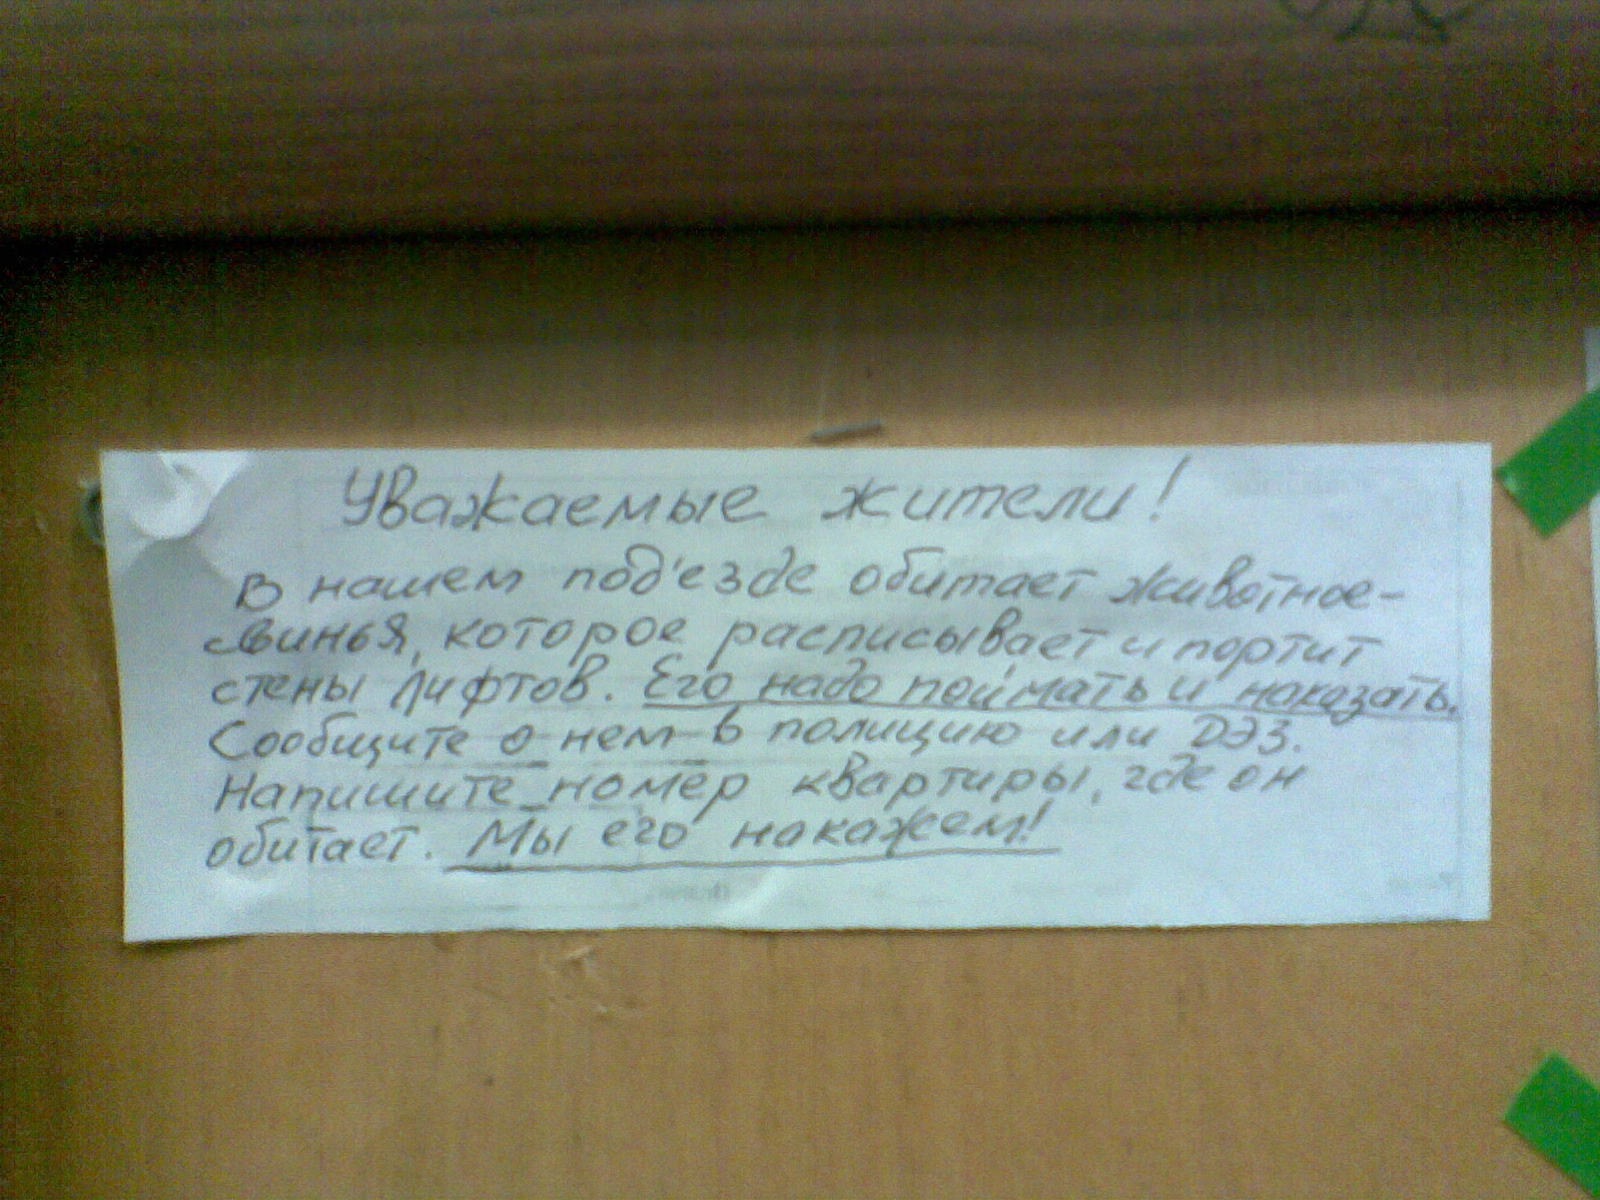 Уважаемые жители!
В нашем под'езде обитает животное-
свинья, которое расписывает и портит
стены лифтов. Его надо поймать и наказать.
Сообщите о нем в полицию или ДЭЗ.
Напишите номер квартиры, где он
обитает. Мы его накажем!